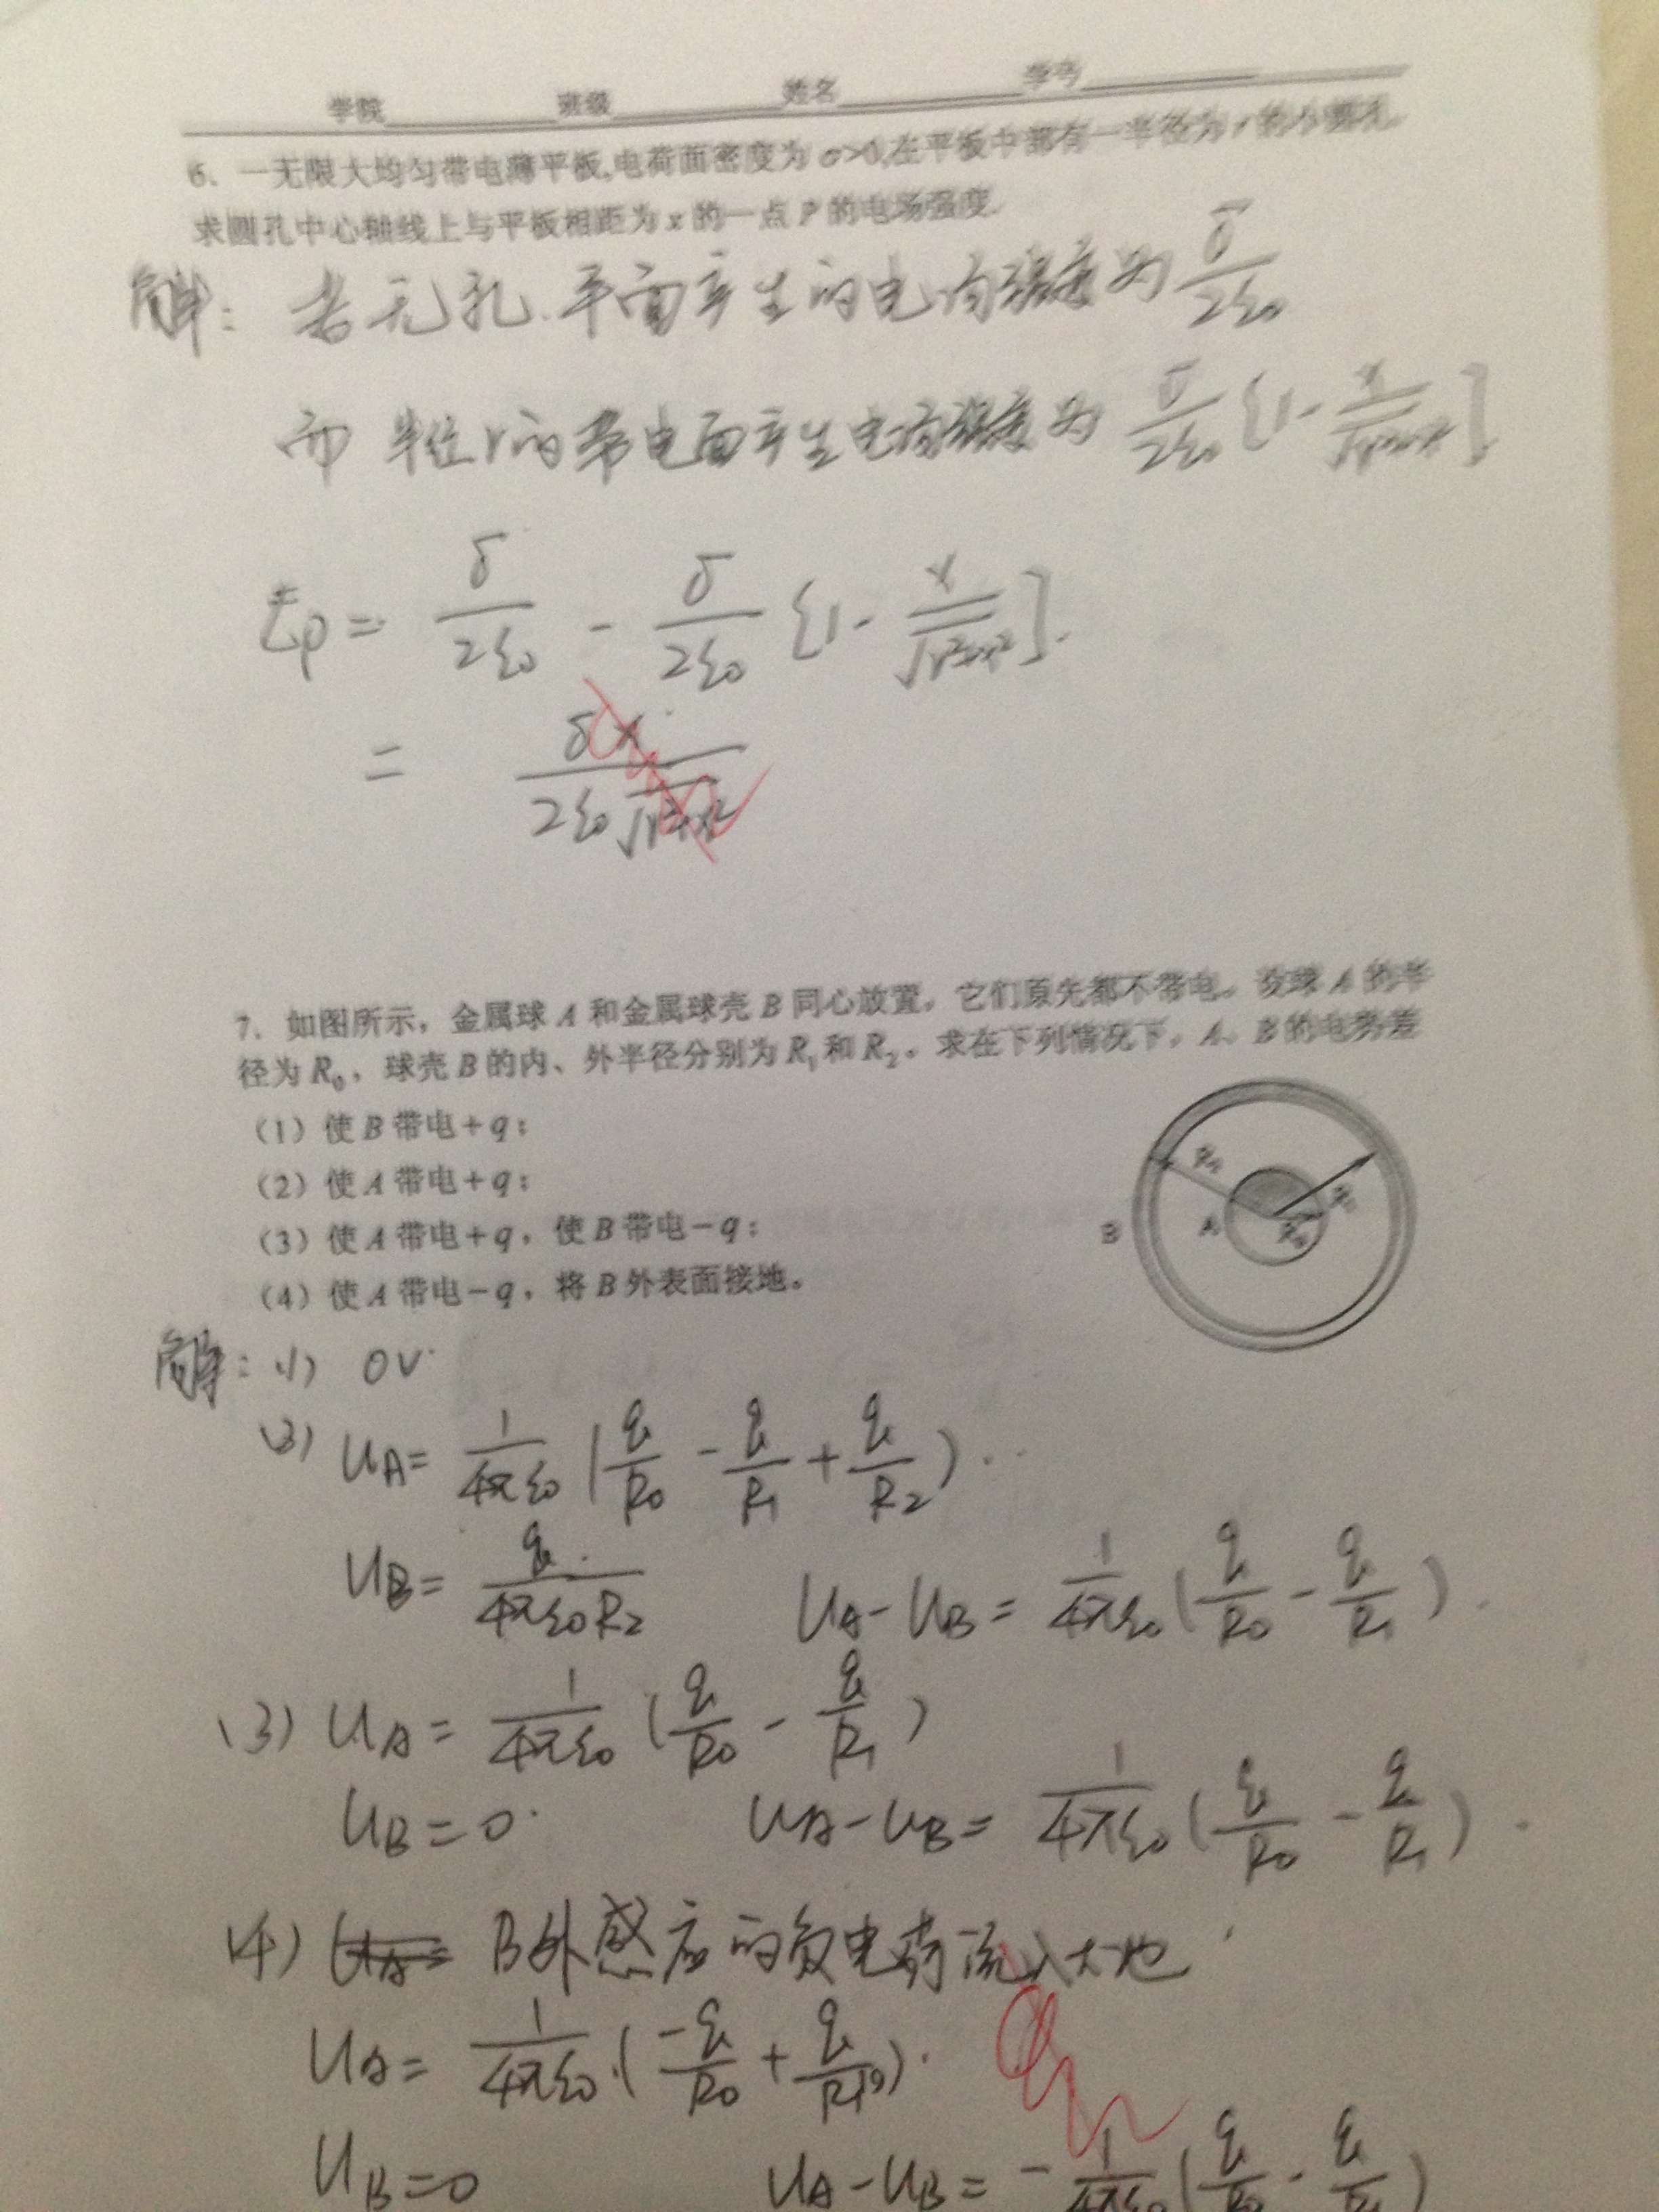 学院 班级 姓名 学号
6. 一无限大均匀带电薄平板,电荷面密度为σ>0,在平板中部有一半径为 r 的小圆孔.
求圆孔中心轴线上与平板相距为 x 的一点 P 的电场强度.
解: 若无孔.平面产生的电场强度为 σ/2ε₀
而 半径r的带电面产生电场强度为 σ/2ε₀ [1- x/√(r²+x²)]
Ep = σ/2ε₀ - σ/2ε₀ [1- x/√(r²+x²)].
= σx/2ε₀√(r²+x²)
7. 如图所示,金属球 A 和金属球壳 B 同心放置,它们原先都不带电。设球 A 的半
径为 R₀,球壳 B 的内、外半径分别为 R₁ 和 R₂。求在下列情况下,A、B 的电势差
(1)使 B 带电+q;
(2)使 A 带电+q;
(3)使 A 带电+q,使 B 带电-q;
(4)使 A 带电-q,将 B 外表面接地。
B A R₂ R₁ R₀
解: (1) 0V
(2) UA= 1/4πε₀ (q/R₀ - q/R₁ + q/R₂).
UB= q/4πε₀R₂ UA-UB= 1/4πε₀ (q/R₀ - q/R₁).
(3) UA= 1/4πε₀ (q/R₀ - q/R₁)
UB=0. UA-UB= 1/4πε₀ (q/R₀ - q/R₁).
(4) B外感应的负电荷流入大地
UA= 1/4πε₀ (-q/R₀ + q/R₁).
UB=0 UA-UB= - 1/4πε₀ (q/R₀ - q/R₁)